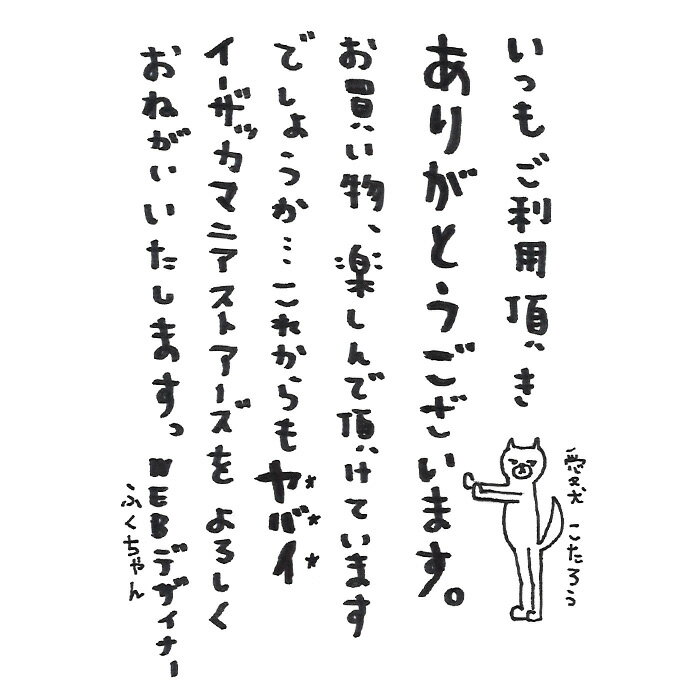 いつもご利用頂き
ありがとうございます。
お買い物、楽しんで頂けています
でしょうか…これからもヤバイ
イーザッカマニアストアーズをよろしく
おねがいいたします。
WEBデザイナー
ふくちゃん
愛犬 こたろう